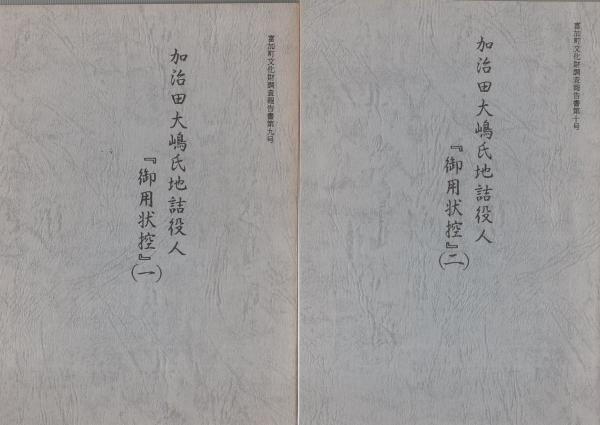 富加町文化財調査報告書第九号
加治田大嶋氏地詰役人
『御用状控』(一)
富加町文化財調査報告書第十号
加治田大嶋氏地詰役人
『御用状控』(二)